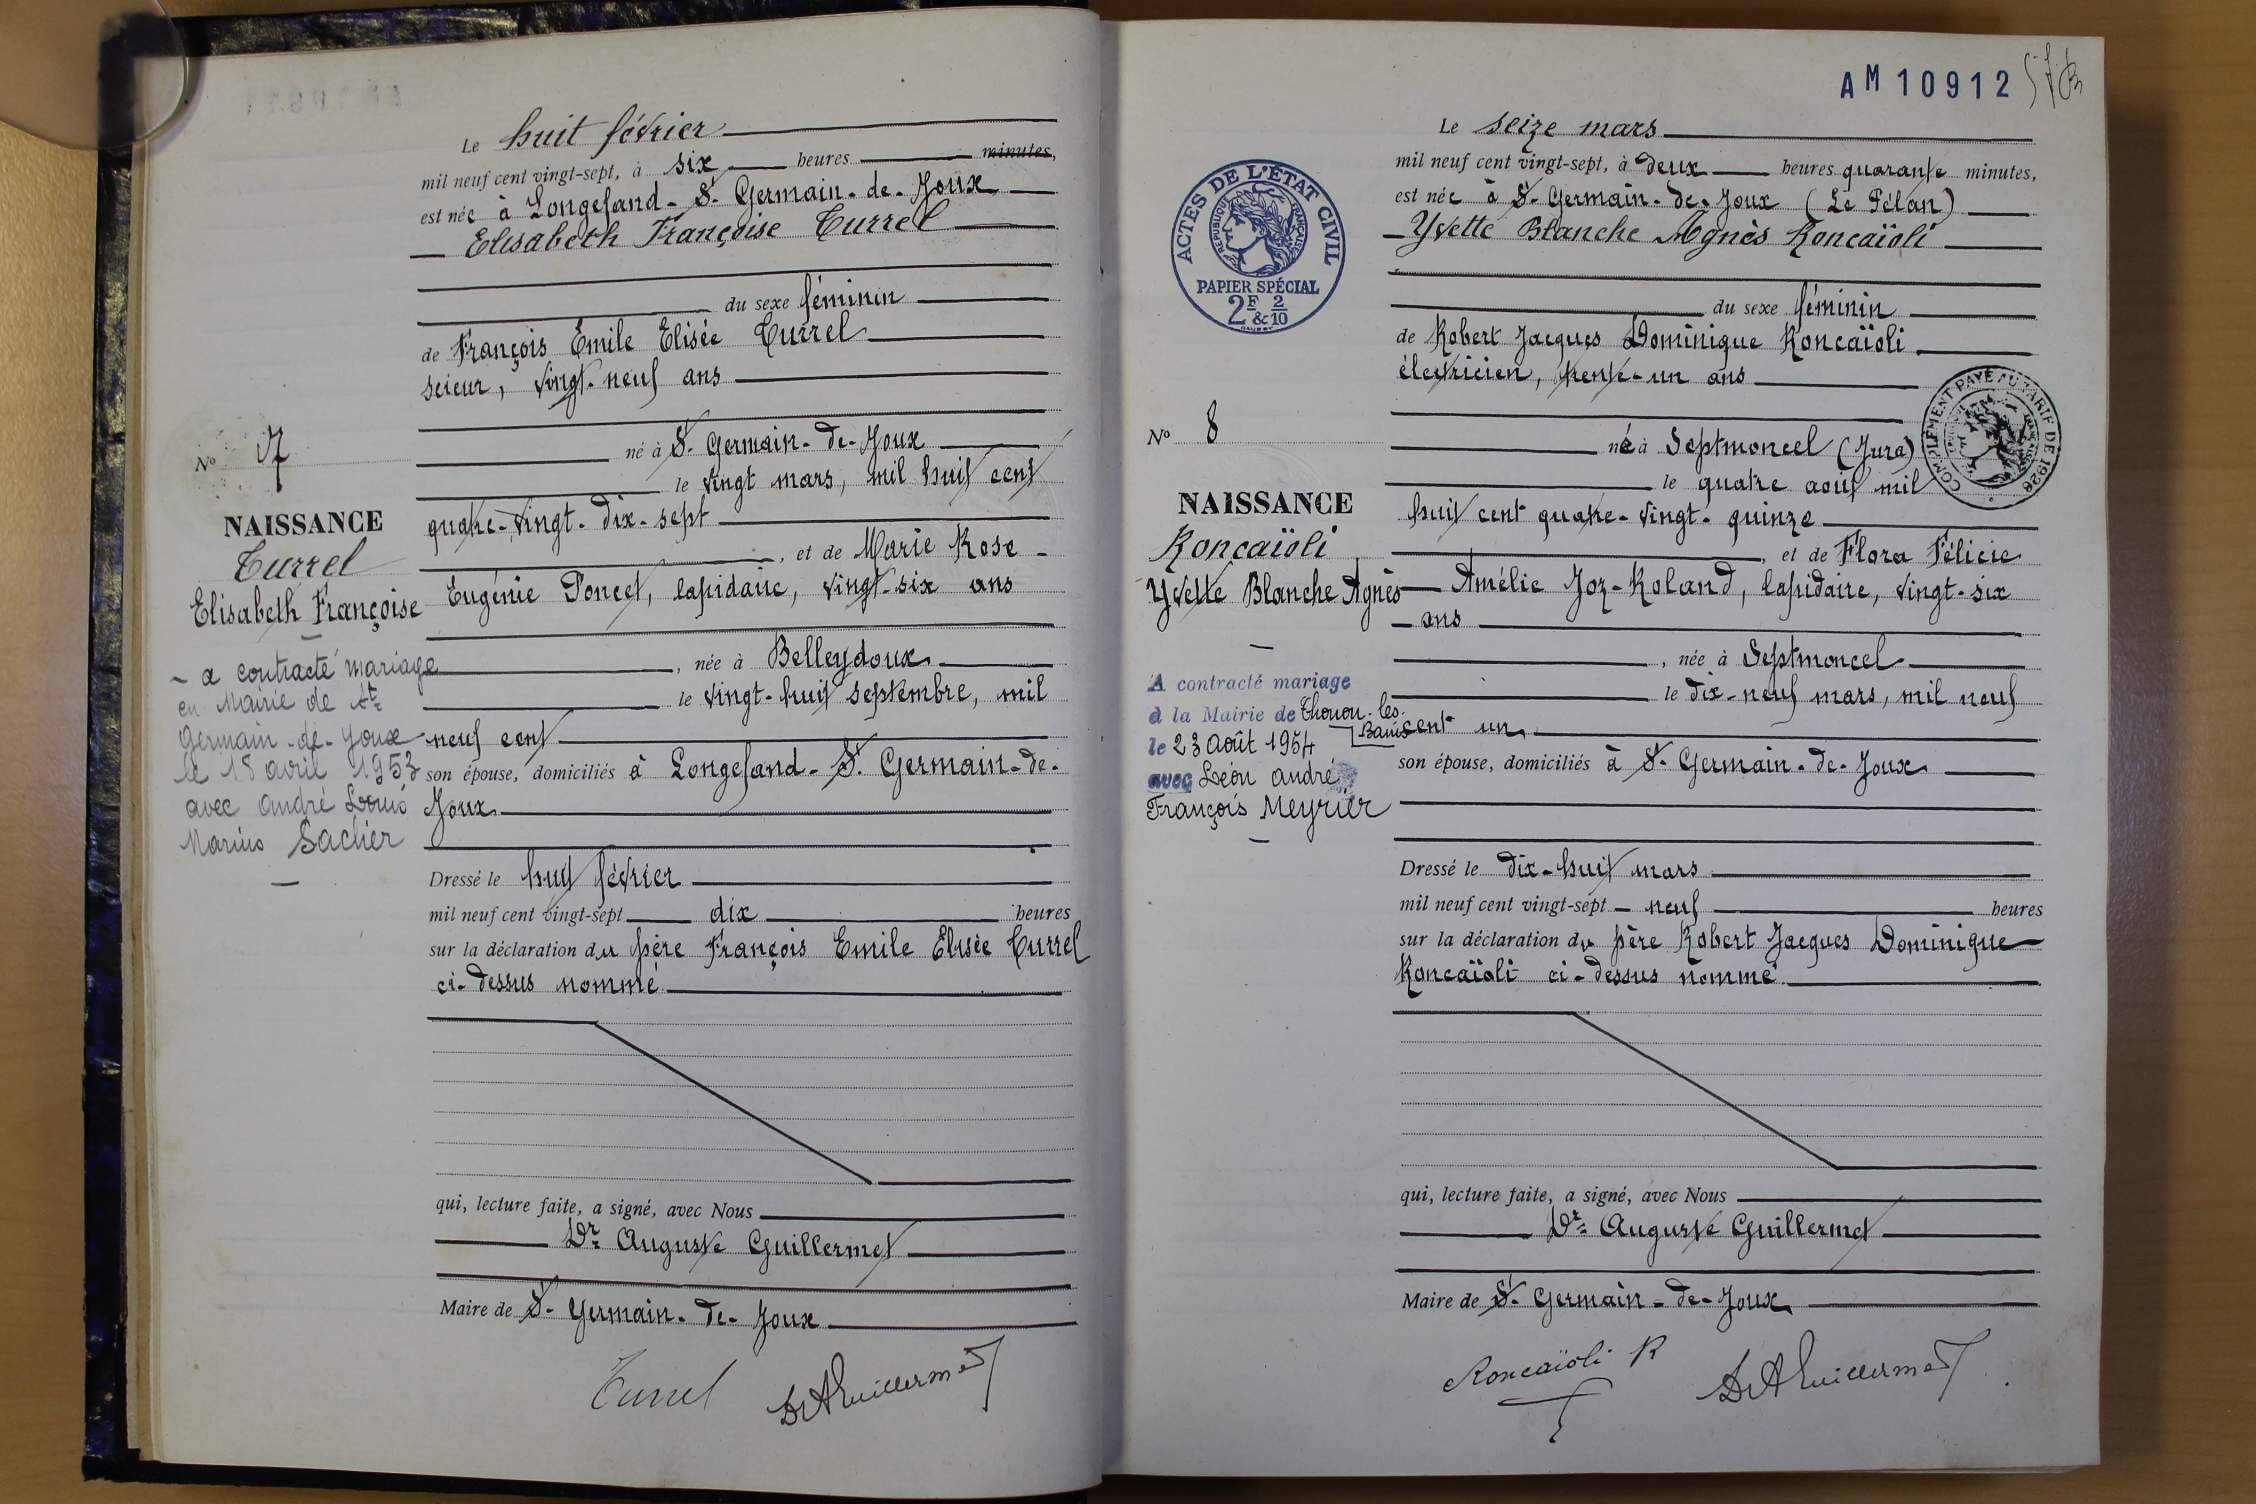 Le huit février
mil neuf cent vingt-sept, à six heures minutes,
est née à Longefand - St Germain-de-Joux
Elisabeth Françoise Turrel
du sexe féminin
de François Emile Elisée Turrel
scieur, vingt-neuf ans
né à St Germain-de-Joux
le vingt mars, mil huit cent
quatre-vingt-dix-sept
, et de Marie Rose
Eugénie Poncet, lapidaire, vingt-six ans
, née à Belleydoux
le vingt-huit septembre, mil
neuf cent
son épouse, domiciliés à Longefand - St Germain-de-
Joux
Dressé le huit février
mil neuf cent vingt-sept dix heures
sur la déclaration du père François Emile Elisée Turrel
ci-dessus nommé
qui, lecture faite, a signé, avec Nous
Dr Auguste Guillermet
Maire de St Germain-de-Joux
Turrel DrAGuillermet
No 7
NAISSANCE
Turrel
Elisabeth Françoise
- a contracté mariage
en Mairie de St
Germain-de-Joux
le 18 avril 1953
avec André Louis
Marius Sacher
AM 10912
Le seize mars
mil neuf cent vingt-sept, à deux heures quarante minutes,
est née à St Germain-de-Joux (Le Pélan)
Yvette Blanche Agnès Roncaïoli
du sexe féminin
de Robert Jacques Dominique Roncaïoli
électricien, trente-un ans
né à Septmoncel (Jura)
le quatre août mil
huit cent quatre-vingt-quinze
, et de Flora Félicie
Amélie Joz-Roland, lapidaire, vingt-six
ans
, née à Septmoncel
le dix-neuf mars, mil neuf
cent un
son épouse, domiciliés à St Germain-de-Joux
Dressé le dix-huit mars
mil neuf cent vingt-sept neuf heures
sur la déclaration du père Robert Jacques Dominique
Roncaïoli ci-dessus nommé
qui, lecture faite, a signé, avec Nous
Dr Auguste Guillermet
Maire de St Germain-de-Joux
Roncaïoli R DrAGuillermet
ACTES DE L'ETAT CIVIL
REPUBLIQUE FRANÇAISE
PAPIER SPÉCIAL
2F & 2/10
COMPLÉMENT PAYÉ AU TARIF DE 1926
No 8
NAISSANCE
Roncaïoli
Yvette Blanche Agnès
A contracté mariage
à la Mairie de Thonon-les-
Bains
le 23 Août 1954
avec Léon André
François Meyrier